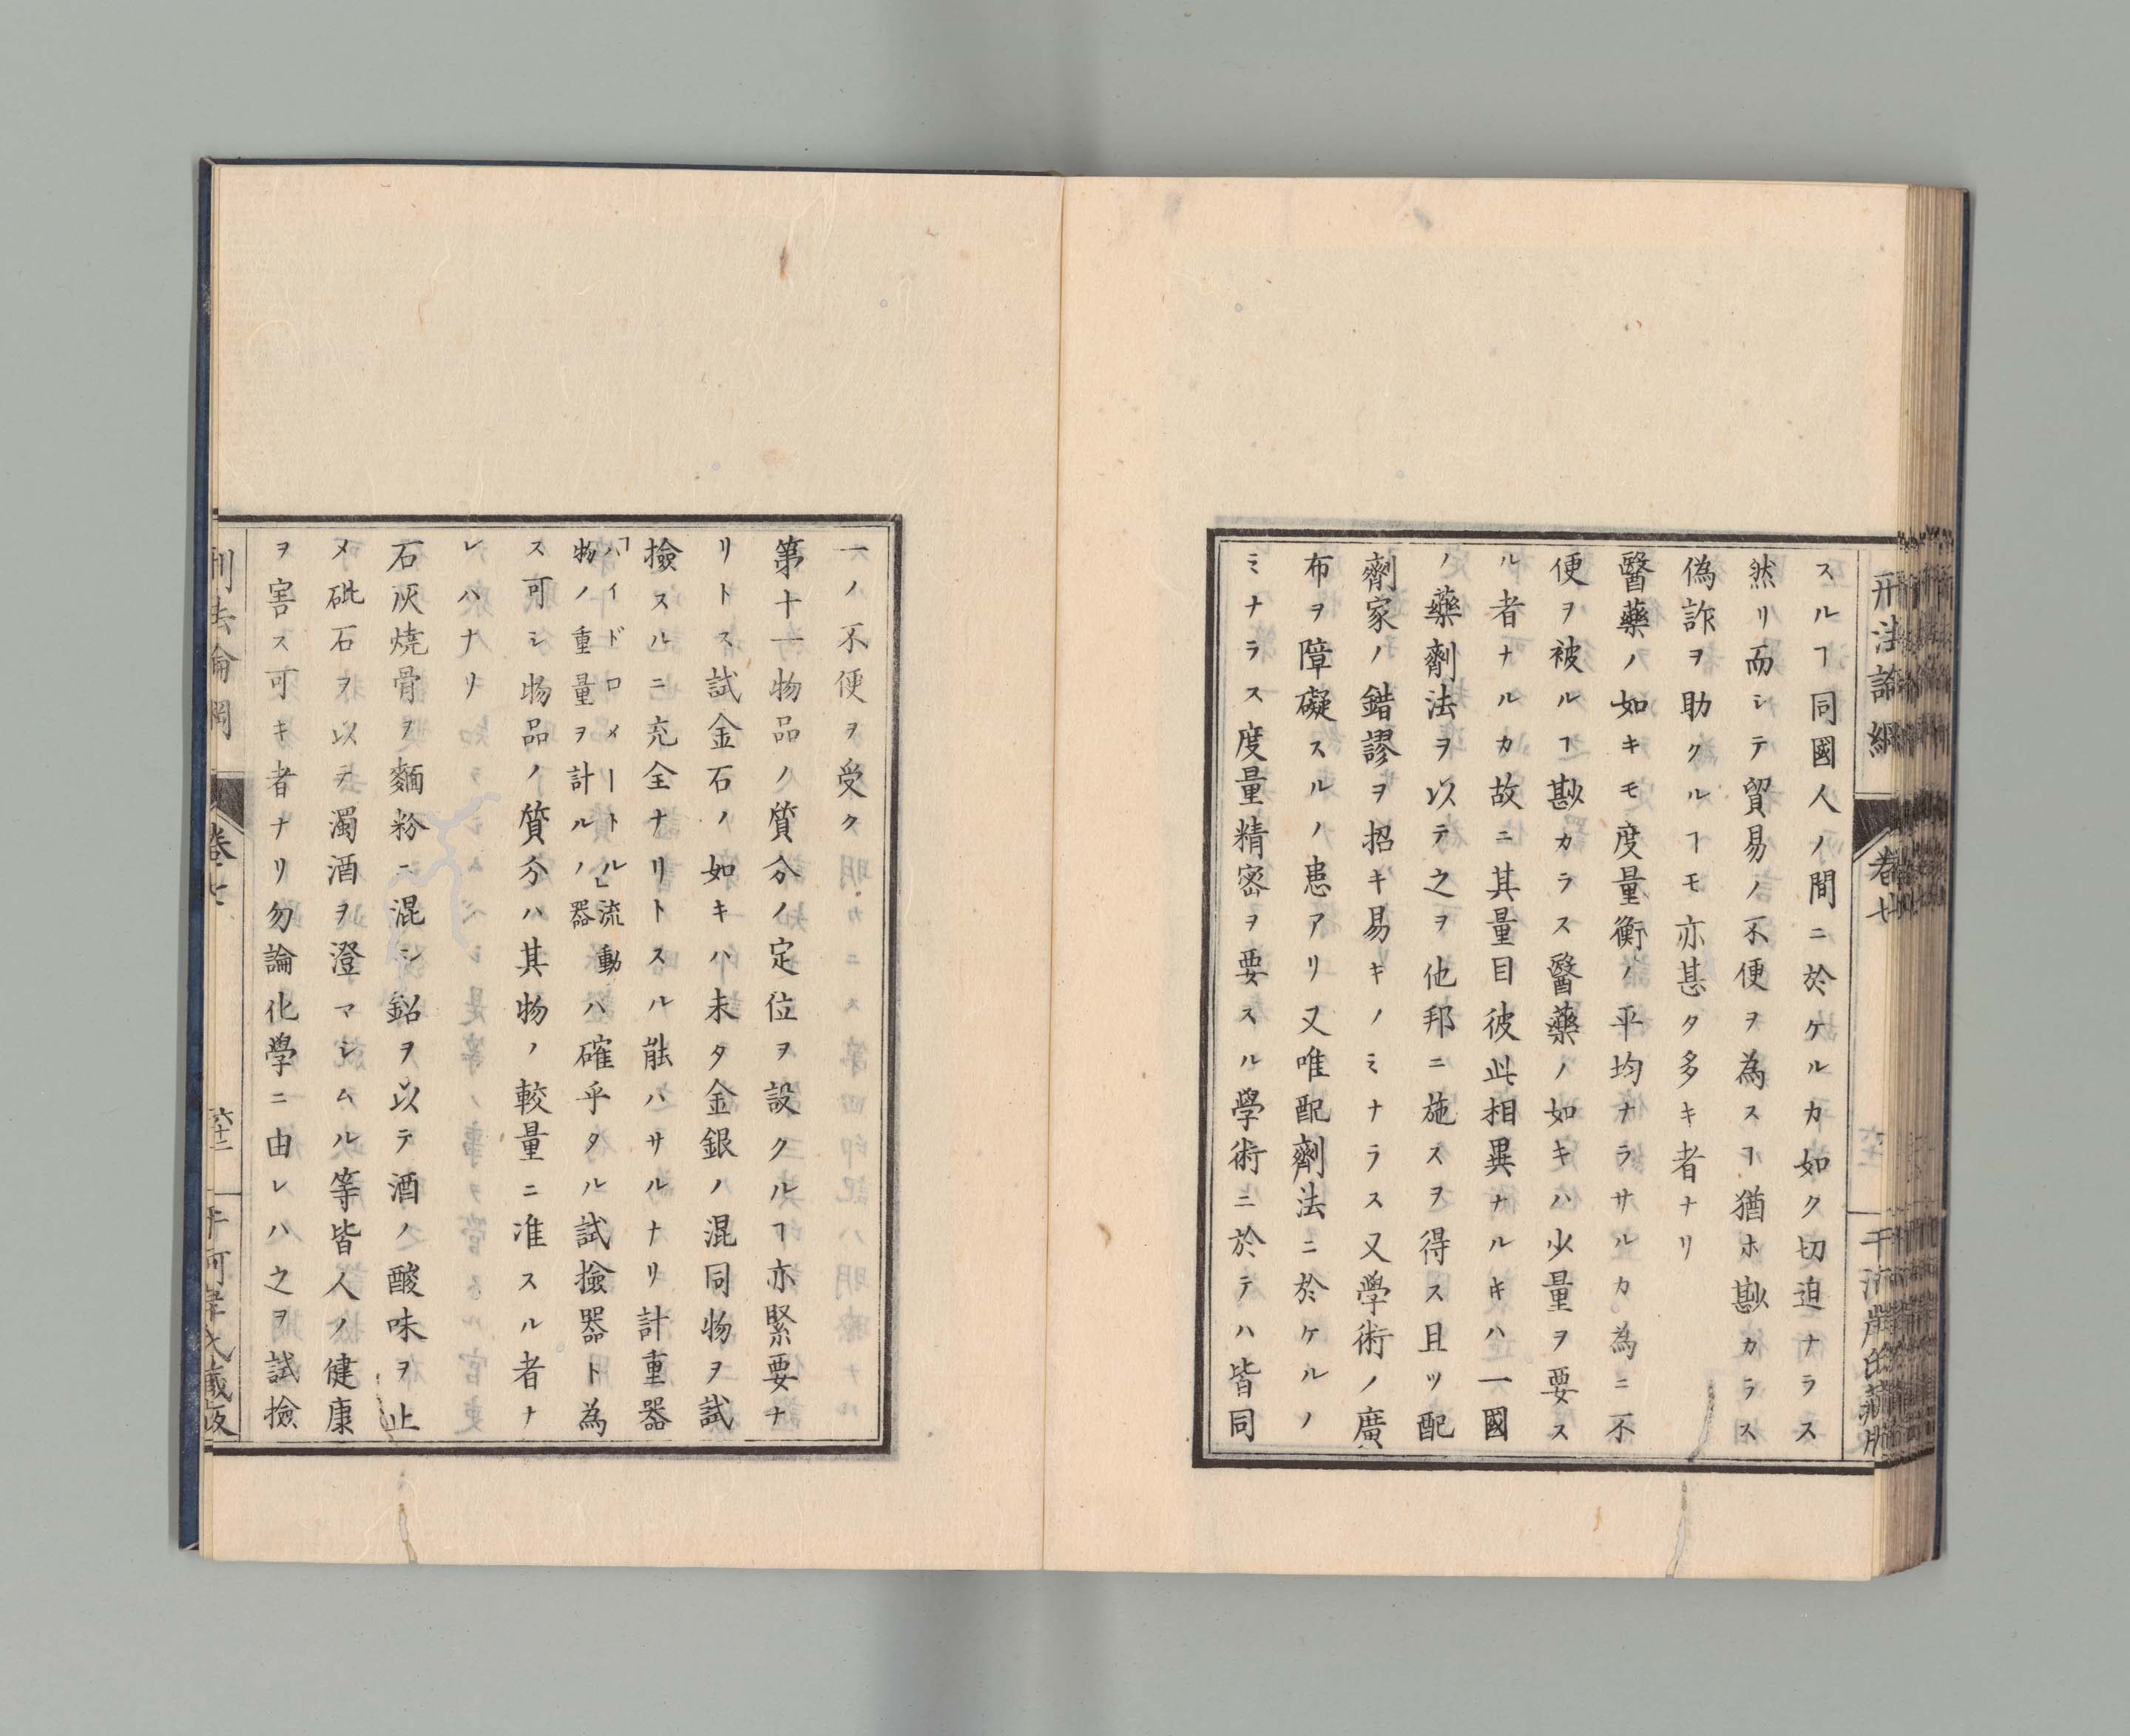 刑法論綱
卷七
スルヿ同國人ノ間ニ於ケルカ如ク切迫ナラス
然リ而シテ貿易ノ不便ヲ為スヿ猶ホ尠カラス
偽詐ヲ助クルヿモ亦甚タ多キ者ナリ
醫藥ノ如キモ度量衡ノ平均ナラサルカ為ニ不
便ヲ被ルヿ尠カラス醫藥ノ如キハ少量ヲ要ス
ル者ナルカ故ニ其量目彼此相異ナルキハ一國
ノ藥劑法ヲ以テ之ヲ他邦ニ施スヲ得ス且ツ配
劑家ノ錯謬ヲ招キ易キノミナラス又學術ノ廣
布ヲ障礙スルノ患アリ又唯配劑法ニ於ケルノ
ミナラス度量精密ヲ要スル學術ニ於テハ皆同
一ノ不便ヲ受ク
第十一物品ノ質分ノ定位ヲ設クルヿ亦緊要ナ
リトス試金石ノ如キハ未タ金銀ノ混同物ヲ試
撿スルニ充全ナリトスル能ハサルナリ計重器
「ハイドロメートル」流動
物ノ重量ヲ計ルノ器
ハ確乎タル試撿器ト為
ス可シ物品ノ質分ハ其物ノ較量ニ准スル者ナ
レハナリ
石灰燒骨ヲ麵粉ニ混シ鉛ヲ以テ酒ノ酸味ヲ止
メ砒石ヲ以テ濁酒ヲ澄マシムル等皆人ノ健康
ヲ害ス可キ者ナリ勿論化學ニ由レハ之ヲ試撿
刑法論綱
卷七
六十二
干河岸氏藏版